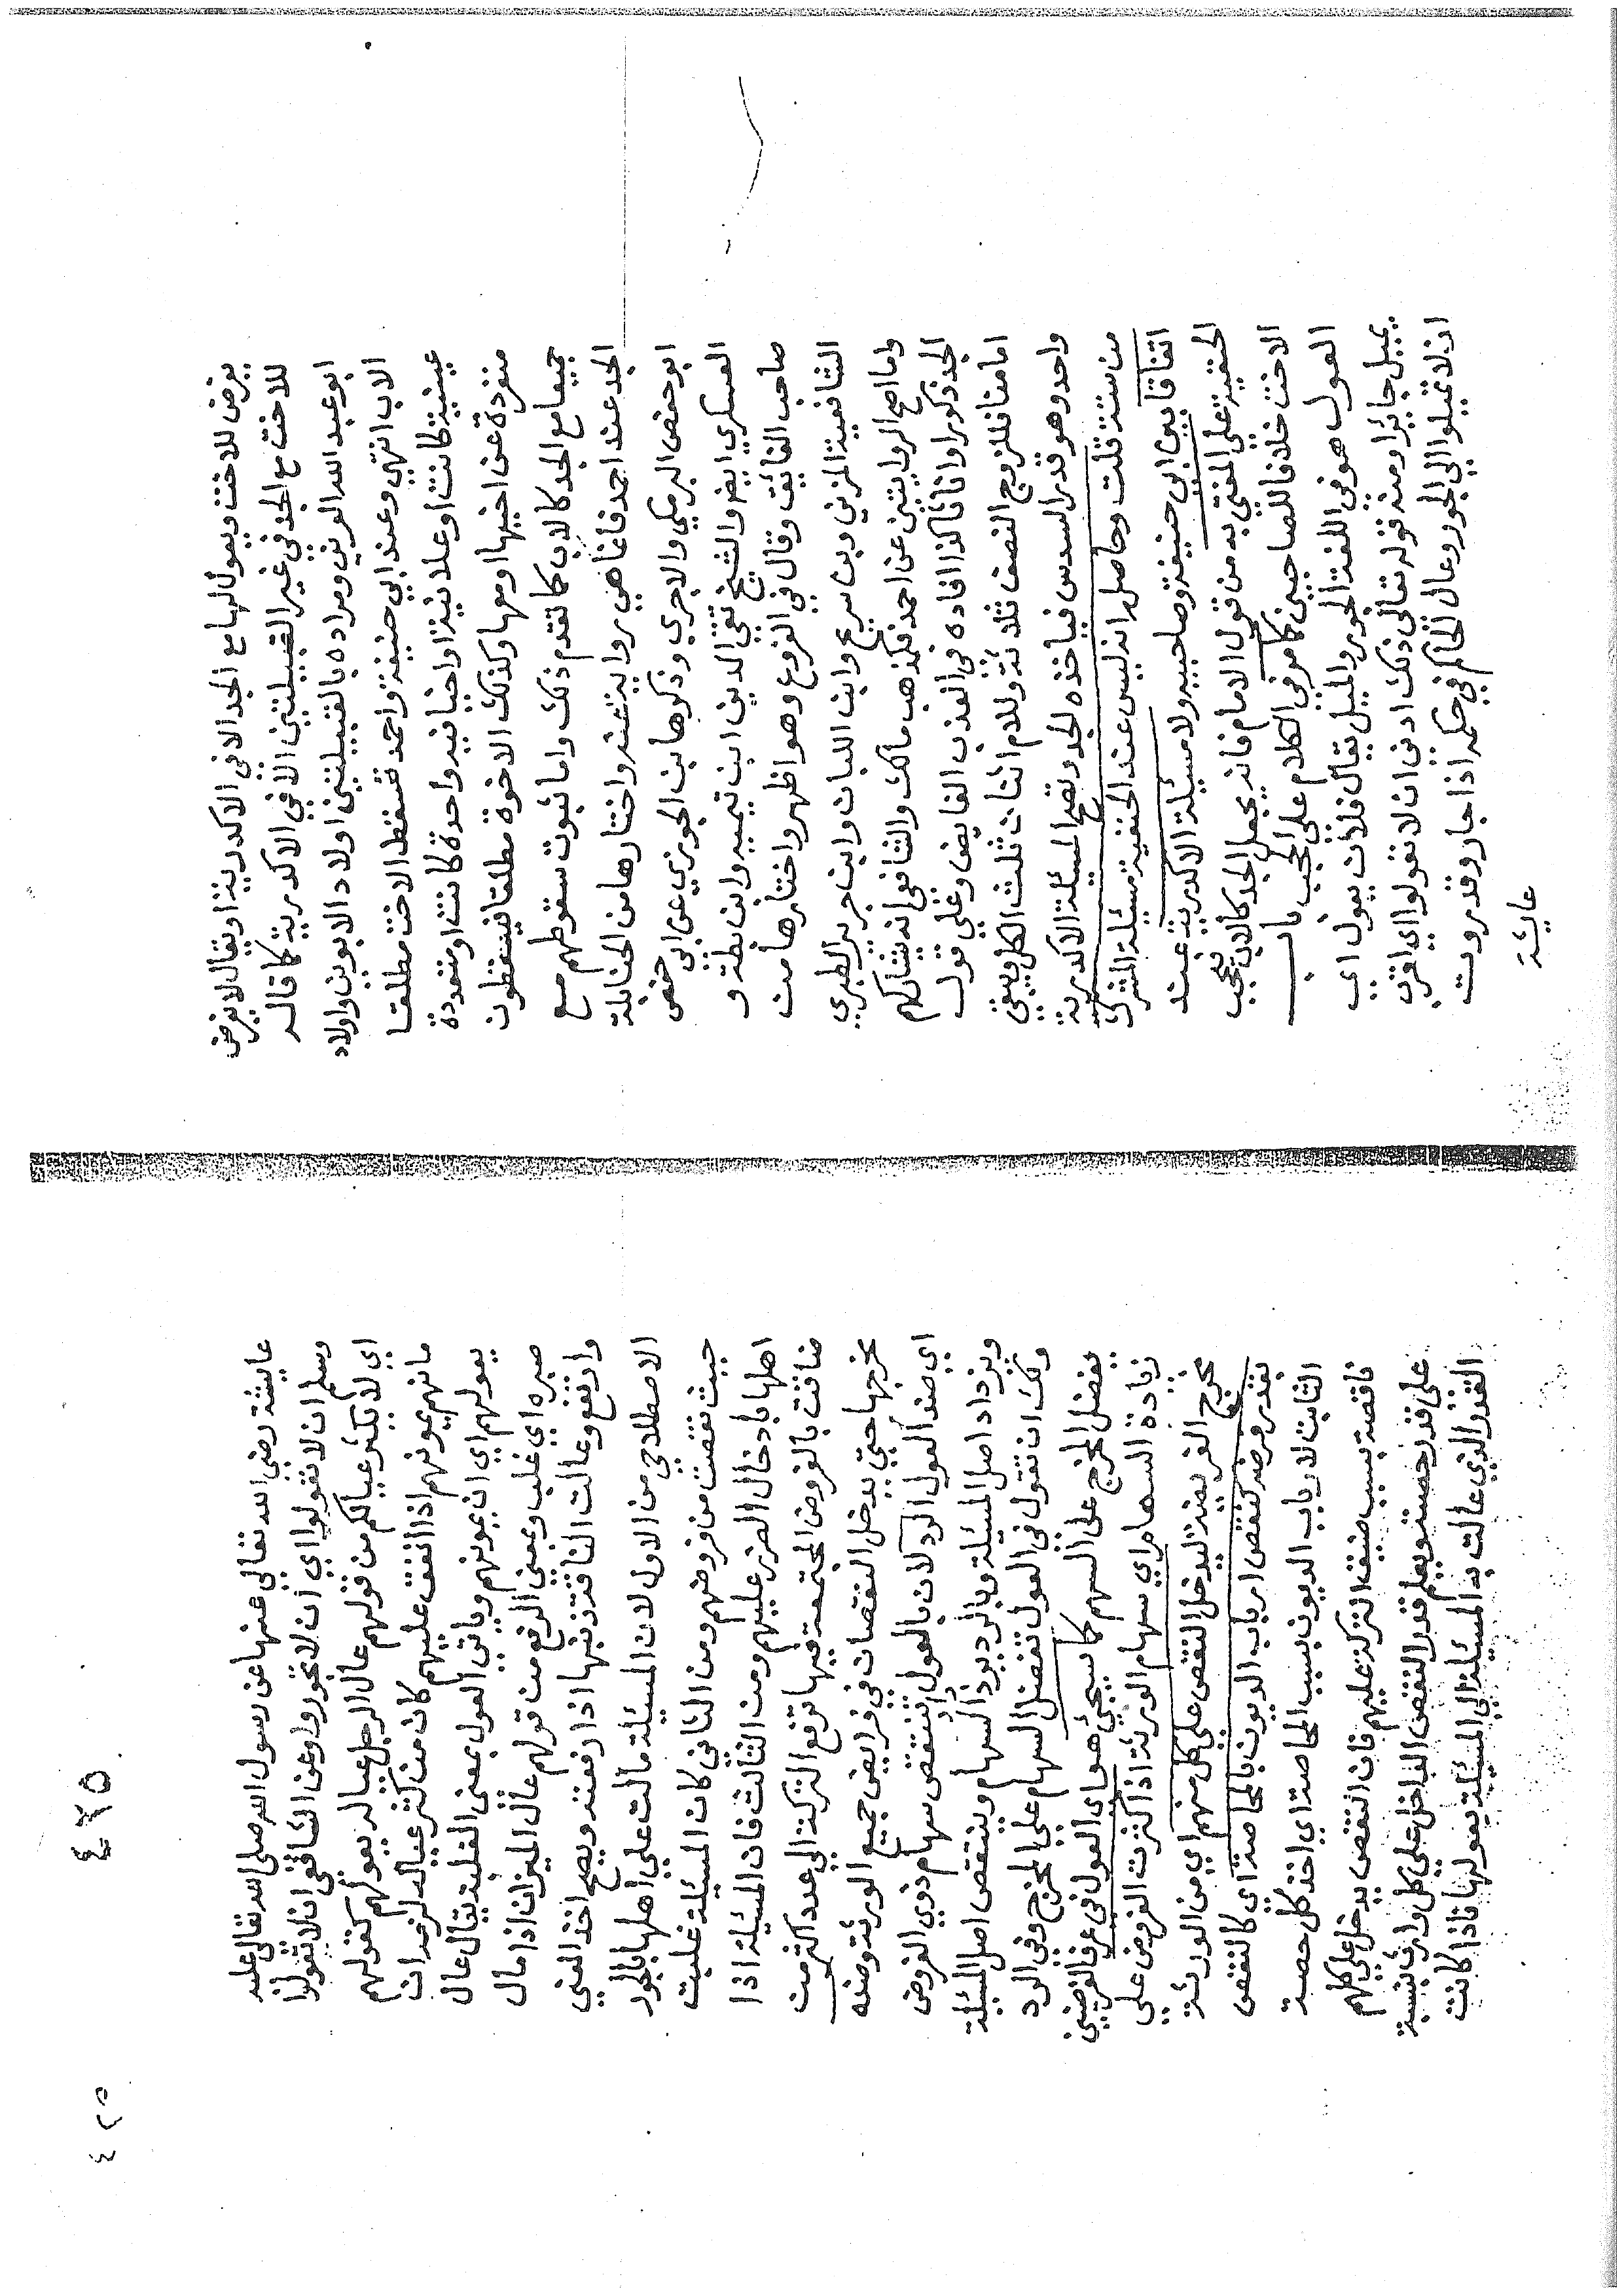 يفرض للاخت ويعول لها مع الجد الا في الاكدرية او يقال لا يفرض
للاخت مع الجد في غير القبيلتين الا في الاكدرية كما قاله
ابو عبد الله الوني ومراده بالقبيلتين اولاد الابوين واولاد
الاب انتهي وعند ابي حنيفة واحمد تسقط الاخت مطلقا
عينية كانت او علانية او اخيافيه واحدة كانت او متعددة
منفردة عن اخيها او معها وكذلك الاخوة مطلقا فيسقطون
جميعا مع الجد كالاب كما تقدم ذلك واما ثبوت سقوطهم مع
الجد عند احمد فانما هي رواية عنه واختارها من الحنابلة
ابو حفص البرمكي والاجري وذكرها بن الجوزي عن ابي حفص
العسكري ايضا والشيخ تقي الدين ابن تيميه وابن بطة و
صاحب الفائق وقال في الفروع وهو اظهر واختارها من
الشافعية المزني وبن سريج وابن اللبان وابن جرير الطبري
واما اصح الروايتين عن احمد فكمذهب مالك والشافعي انه يشاركهم
الجد ذكورا واناثا كذا افاده في العذب الفايض وعلي قول
امامنا فللزوج النصف ثلاثة وللام اثنان ثلث الكل ويبقي
واحد وهو قدر السدس فياخذه الجد وتصح المسيلة الاكدرية
من ستة قلت وحاصل انه ليس عند الحنفية مسيلة المشركة
اتفاقا بين ابي حنيفة وصاحبيه ولا مسيلة الاكدرية عند
الحنفية علي المفتي به من قول الامام فانه يجعل الجد كالاب يحجب
الاخت خلافا للصاحبين كما مر في الكلام علي الحجب باب
العول هو في اللغة الجور والميل يقال فلان يعول اي
يميل جايرا ومنه قوله تعالي ذلك ادني ان لا تعولوا اي اقرب
ان لا تميلوا الي الجور وعال الحاكم في حكمه اذا جار وقد روت
عايشة
٤٢٥
٤٢٥
عايشة رضي الله تعالي عنها عن رسول الله صلي الله تعالي عليه
وسلم ان لا تعولوا اي ان لا تجوروا وعن الشافعي ان لا تعولوا
اي لا يكثر عيالكم من قولهم عال الرجل عياله يعولهم كقولهم
مانهم يمونهم اذا انفق عليهم كان من كثر عياله لزمه ان
يعولهم اي ان يمونهم وياتي العول بمعني الغلبة يقال عال
صبره اي غلب وبمعني الرفع من قولهم عال الميزان اذا مال
وارتفع وعالت الناقة ذنبها اذا رفعته ويصح اخذ المعني
الاصطلاحي من الاول لان المسيلة مالت علي اهلها بالجور
حيث نقصت من فروضهم ومن الثاني كان المسيلة غلبت
اهلها بادخال الضرر عليهم ومن الثالث فان المسيلة اذا
ضاقت بالفروض المجتمعة فيها ترفع التركة الي عدد اكثر من
مخرجها حتي يدخل النقصان في فرايض جميع الورثة وضده
اي ضد العول الرد لان بالعول تنتقص سهام ذوي الفروض
ويزداد اصل المسيلة وبالرد يزداد السهام وينتقص اصل المسيلة
ولك ان تقول في العول تفضل السهام علي المخرج وفي الرد
يفضل المخرج علي السهم كما سيجئ هو اي العول في عرف الفرضيين
زيادة السهام اي سهام الورثة اذا كثرت الفروض علي
مخرج الفريضة ليدخل النقص علي كل منهم اي من الورثة
بقدر فرضه كنقص ارباب الديون بالمحاصة اي كالنقص
الثابت لارباب الديون بسبب المحاصة اي اخذ كل حصة
ناقصة بسبب ضيق التركة عليهم فان النقص يدخل علي كلهم
علي قدر حصته ويعلم قدر النقص الداخل علي كل وارث بنسبة
القدر الذي عالت به المسيلة الي المسيلة بعولها فاذا كانت